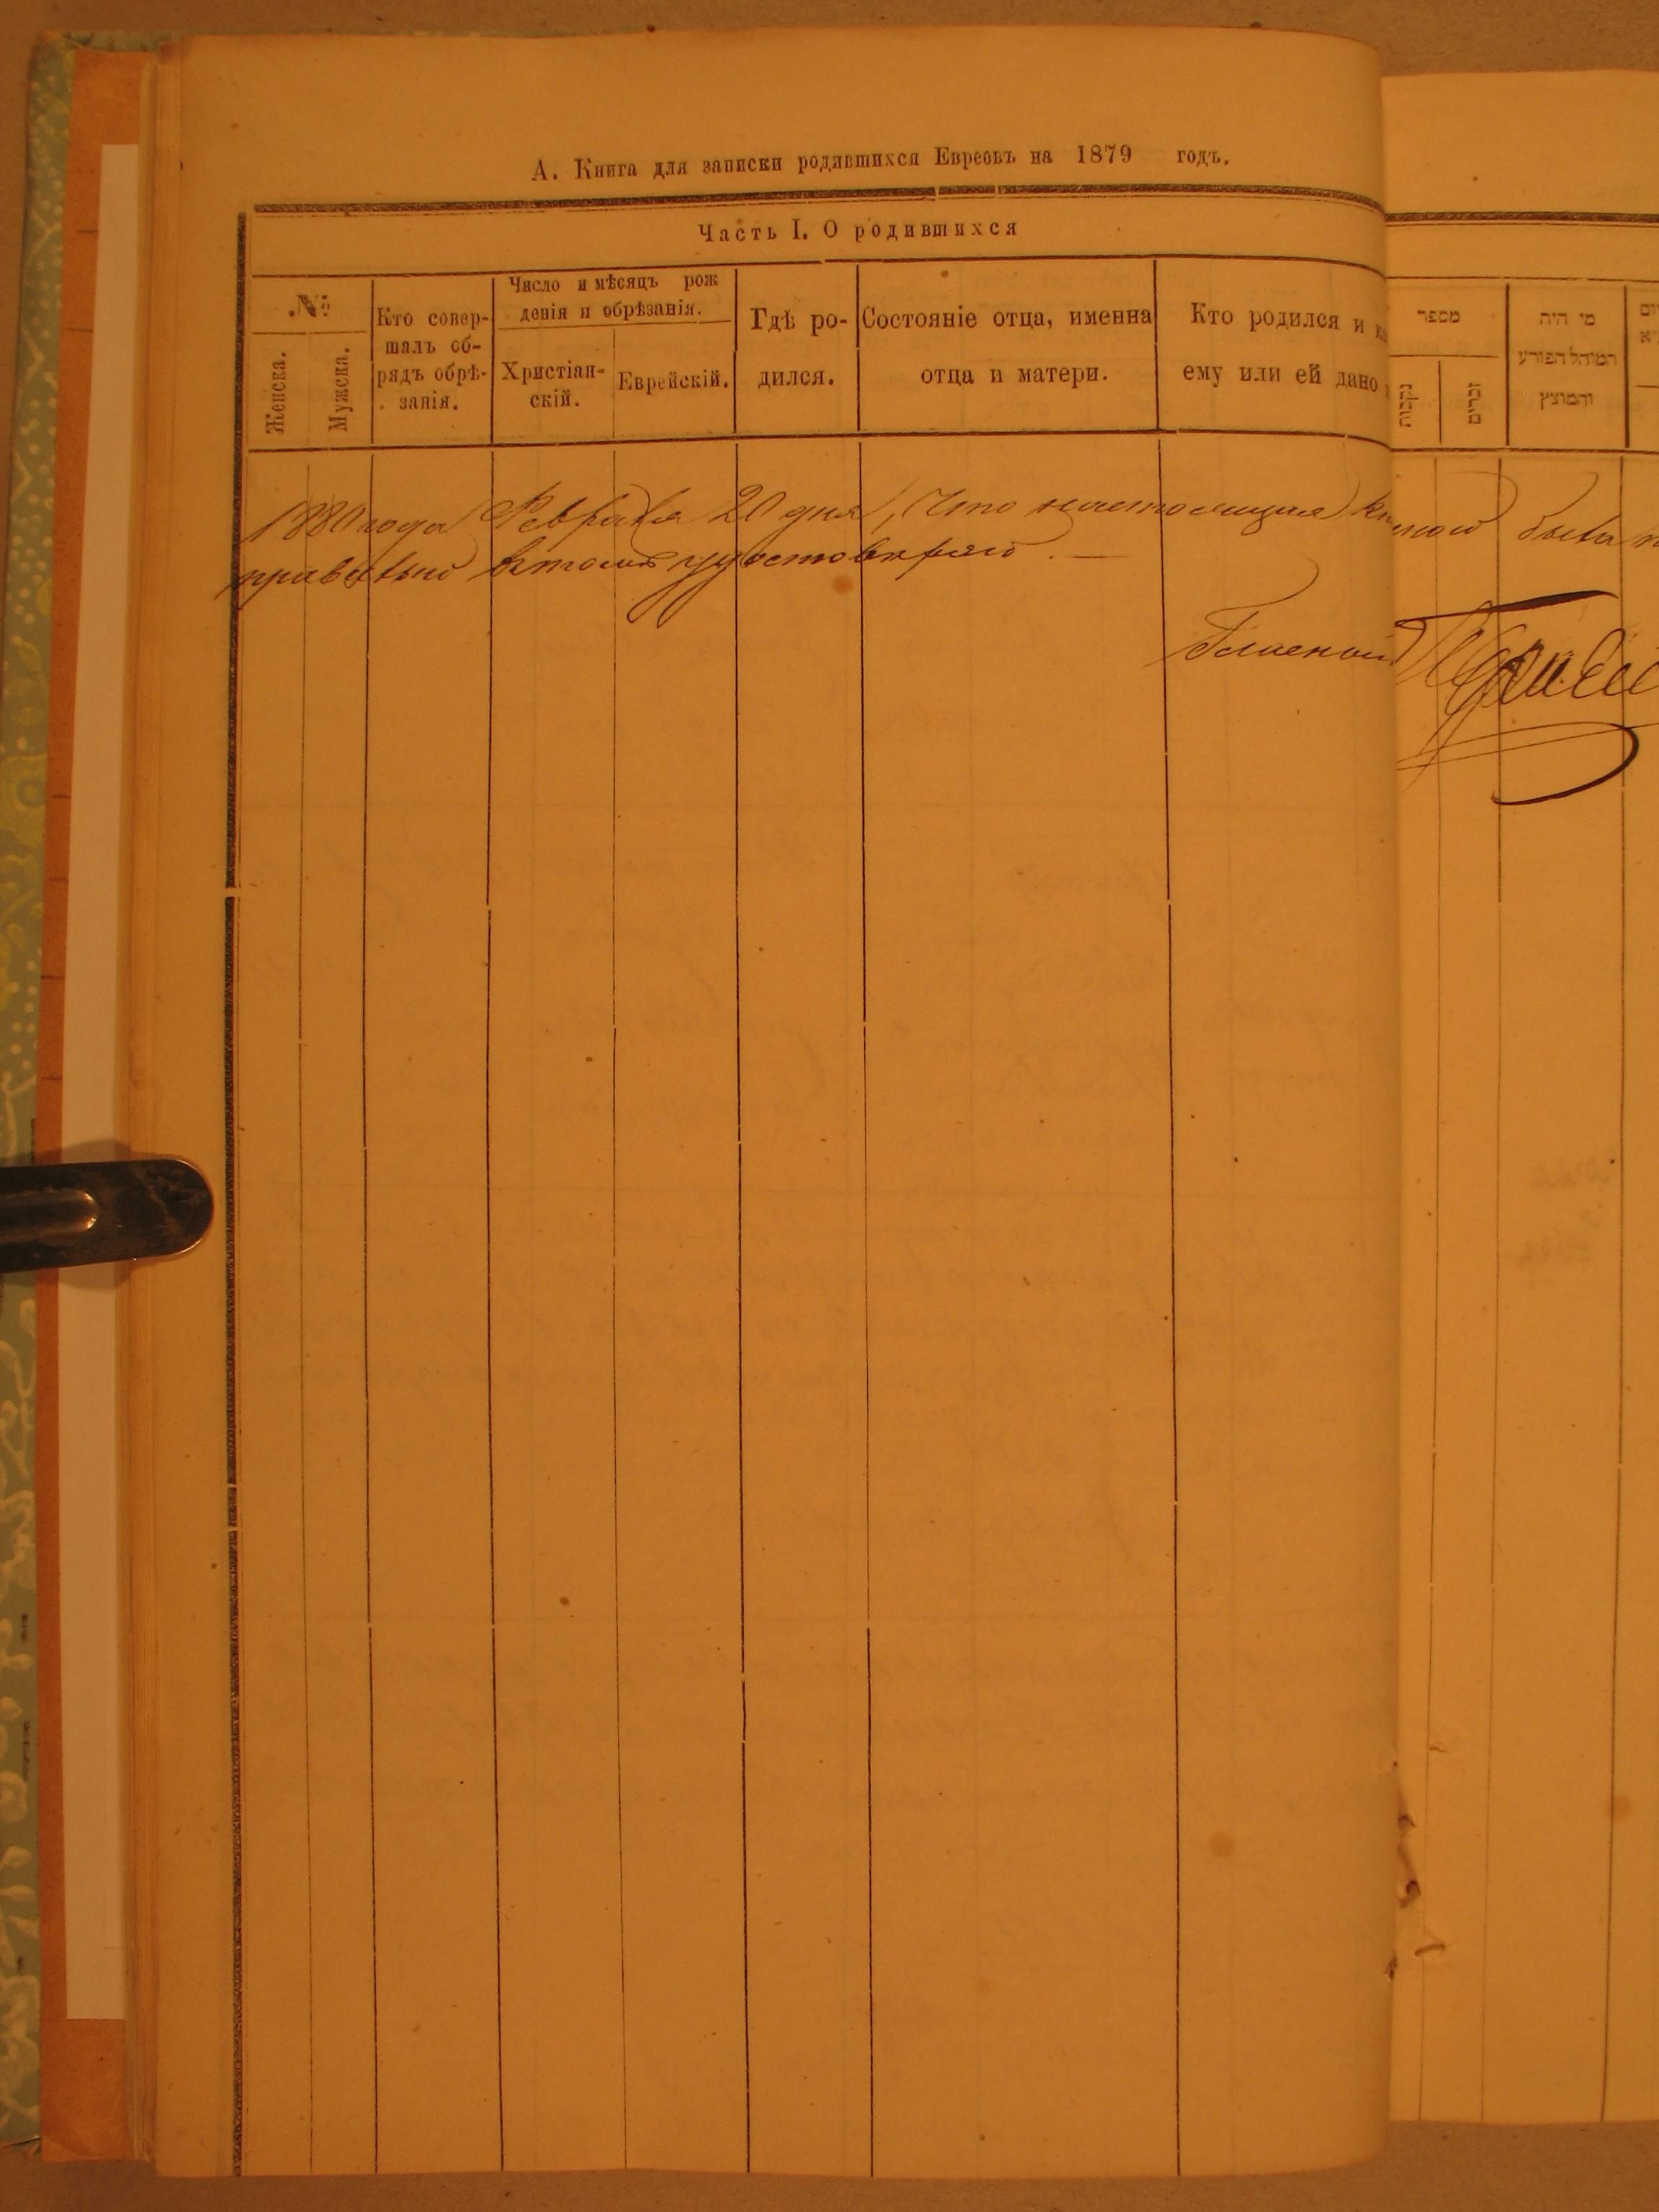 А. Книга для записки родившихся Евреовъ на 1879 годъ.
Часть I. О родившихся
№
Женска.
Мужска.
Кто совер-
шалъ об-
рядъ обрѣ-
занія.
Число и мѣсяцъ рож
денія и обрѣзанія.
Христіан-
скій.
Еврейскій.
Гдѣ ро-
дился.
Состояніе отца, именна
отца и матери.
Кто родился и
ему или ей дано
מספר
נקבות
זכרים
מי היה
המוהל הפורע
והמוצץ
1880 года Февраля 20 дня, Что настоящая была
правильно въ томъ удостовѣряю. —
Гласный